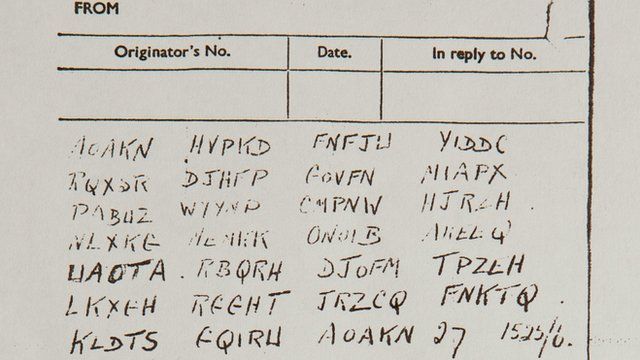 FROM
Originator's No. Date. In reply to No.
AOAKN HVPKD FNFJU YIDDC
RQXSR DJHFP GOVFN MIAPX
PABUZ WYYNP CMPNW HJRZH
NLXKG MEMKK ONOIB AKEEQ
UAOTA RBQRH DJOFM TPZEH
LKXGH RGGHT JRZCQ FNKTQ
KLDTS GQIRU AOAKN 27 1525/6.